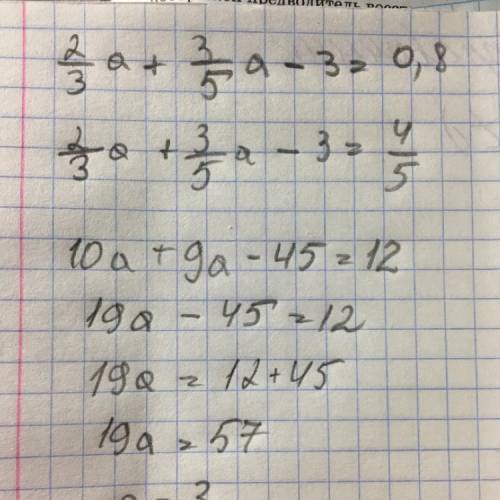 предводитель
2/3 a + 3/5 a - 3 = 0,8
2/3 a + 3/5 a - 3 = 4/5
10a + 9a - 45 = 12
19a - 45 = 12
19a = 12 + 45
19a = 57